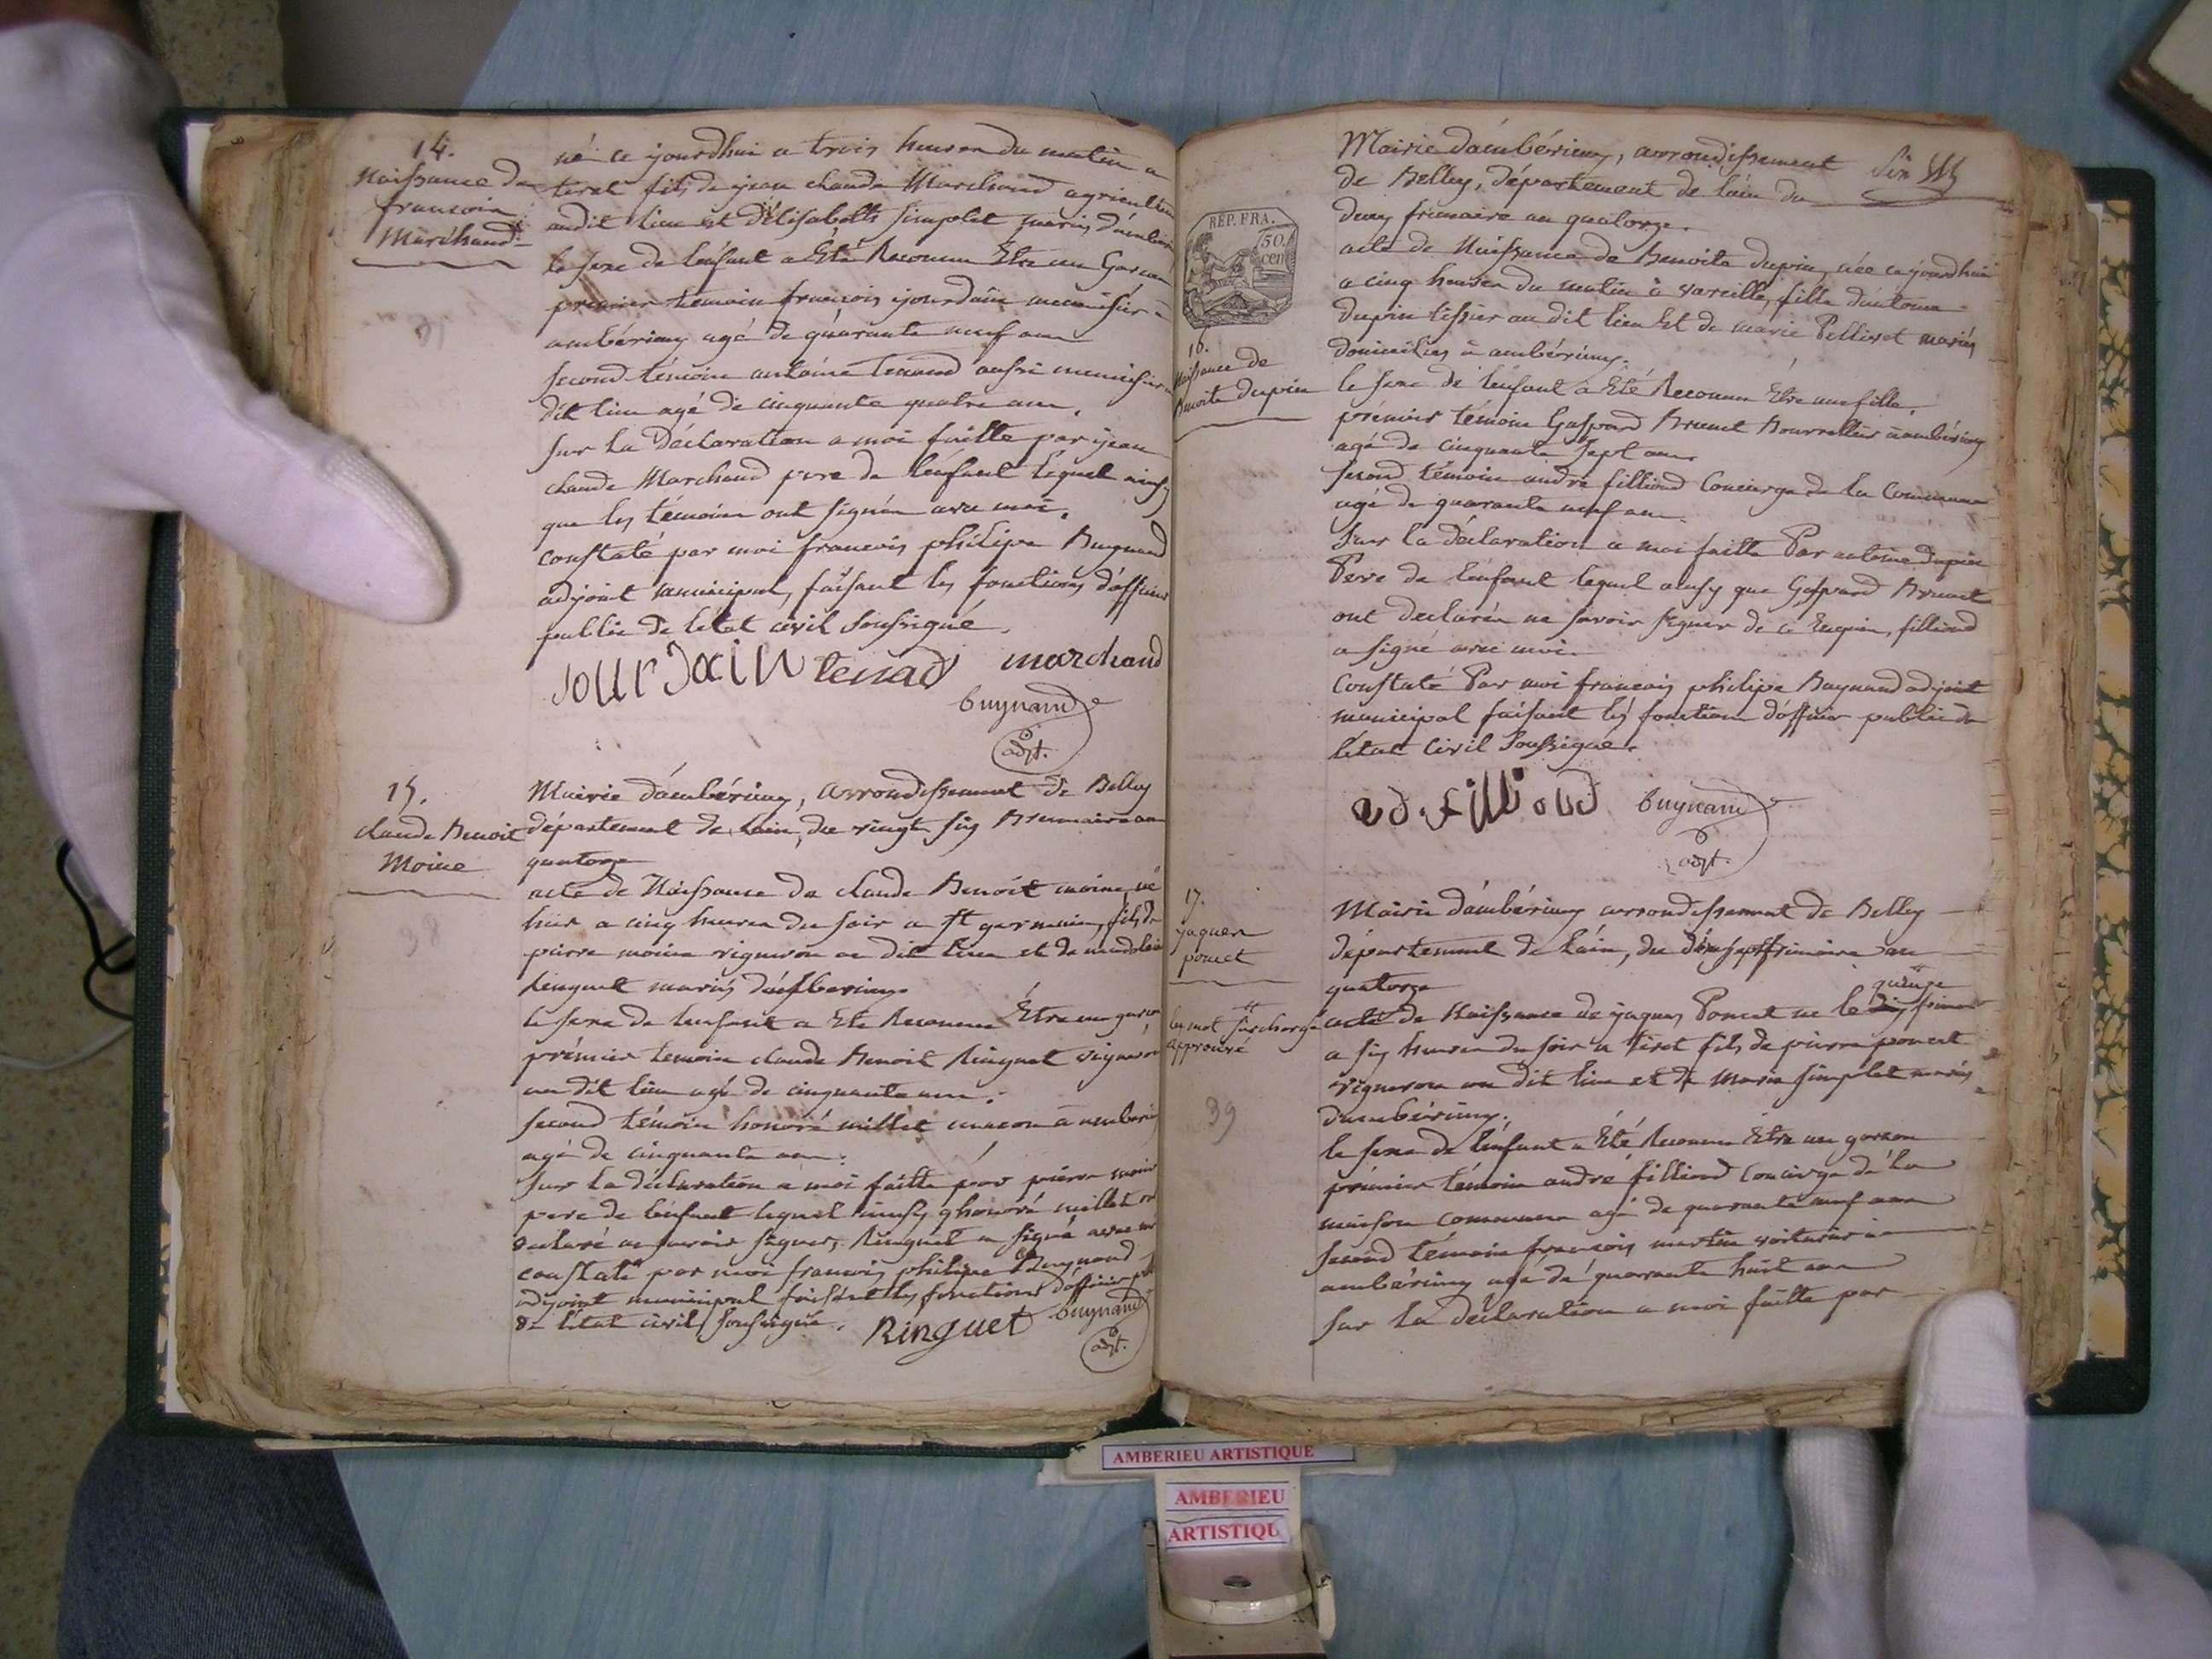 14.
Naissance de
francois
Marchand
né ce yourdhui a trois heures du matin a
tiret fils de jean claude Marchand agriculteur
audit lieu et d'élisabeth Simplet mariés d'ambérieu
le sexe de l'enfant a Eté Reconnu Etre un Garcon
premier témoin francois jourdain menuisier
ambérieux agé de quarante neuf ans
second témoin antoine tenand aussi menuisier
dit lieu agé de cinquante quatre ans.
sur la Déclaration a moi faitte par jean
claude Marchand pere de l'enfant lequel ainsy
que les témoins ont signés avec moi.
constaté par moi francois philipe Buynand
adjoint municipal, faisant les fonctions d'officier
public de l'état civil soussigné.
jourdain tenad marchand
buynand
adjt.
15.
claude Benoit
Moine
Mairie d'ambérieux, arrondissement de Belley
département de lain, du vingt six Brumaire an
quatorze
acte de Naissance de claude Benoit moine né
hier a cinq heures du soir a st germain, fils de
pierre moine vigneron au dit lieu et de madelaine
Ringuet mariés d'ambérieux
le sexe de lenfant a Eté Reconnu Etre un garcon
prémier temoin claude Benoit Ringuet vigneron
au dit lieu agé de cinquante ans.
second témoin honoré millet macon a amberieux
agé de cinquante ans.
sur la déclaration a moi faitte par pierre moine
pere de lenfant lequel ainsy q honoré millet
declaré ne savoir signer, Ringuet a signé avec moi
constaté par moi francois philipe Buynand
adjoint municipal faisant les fonctions d'officier
de l'état civil soussigné. Ringuet buynand
adjt.
Mairie d'ambérieux, arrondissement
de Belley, département de lain du
deux frimaire an quatorze.
REP. FRA.
50
cen
16.
Naissance de
Benoite dupin
acte de Naissance de Benoite dupin, née ce jourdhui
a cinq heures du matin à vareilles, fille d'antoine
dupin tissier au dit lieu Et de marie Pellisset mariés
domiciliés à ambérieux.
le sexe de l'enfant a Eté Reconnu Etre une fille.
prémier témoin Gaspard Brunet Bourrellier a ambérieux
agé de cinquante sept ans.
second témoin andré filliod Concierge de la Commune
agé de quarante neuf ans.
sur la déclaration a moi faitte Par antoine dupin
Pere de l'enfant lequel ainsy que Gaspard Brunet
ont declarés ne savoir signer de ce Enquis, filliod
a signé avec moi.
Constaté Par moi francois philipe Buynand adjoint
municipal faisant les fonctions d'officier public de
l'état Civil Soussigné.
ad. filliod buynand
adjt.
17.
jaques
poncet
Mairie d'ambérieux arrondissement de Belley
département de lain, du dixsept frimaire an
quatorze
quinze
acte de Naissance de jaques Poncet né le frimaire
les mot surchargé
approuvé
a six heures du soir a tiret fils de pierre poncet
vigneron au dit lieu et de Marie Simplet mariés
d'ambérieux.
39
le sexe de l'enfant a Eté Reconnu Etre un garcon
prémier témoin andré filliod concierge de la
maison commune agé de quarante neuf ans
second témoin francois martin voiturier a
ambérieux agé de quarante huit ans
sur la déclaration a moi faitte par
AMBERIEU ARTISTIQUE
AMBERIEU
ARTISTIQU